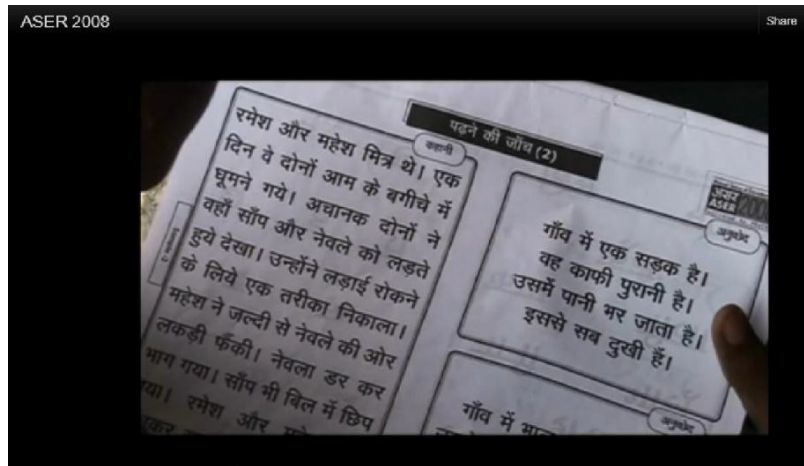 ASER 2008
Share
पढ़ने की जाँच (2)
कहानी
रमेश और महेश मित्र थे। एक
दिन वे दोनों आम के बगीचे में
घूमने गये। अचानक दोनों ने
वहाँ साँप और नेवले को लड़ते
हुये देखा। उन्होंने लड़ाई रोकने
के लिये एक तरीका निकाला।
महेश ने जल्दी से नेवले की ओर
लकड़ी फेंकी। नेवला डर कर
भाग गया। साँप भी बिल में छिप
रमेश और
असर
ASER 200
अनुच्छेद
गाँव में एक सड़क है।
वह काफी पुरानी है।
उसमें पानी भर जाता है।
इससे सब दुखी हैं।
अनुच्छेद
गाँव में